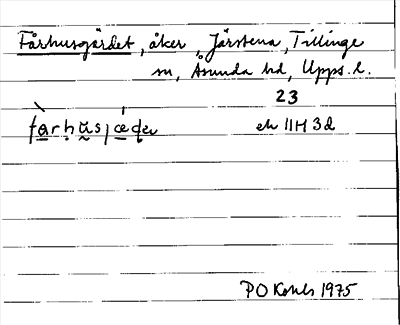 Fårhusgärdet, åker, Järstena, Tillinge
sn, Åsunda hd, Upps. l.
23
ek 11H 3d
PO 1975